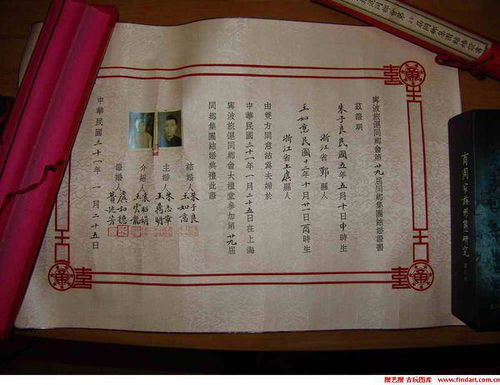 寧波旅滬同鄉會第廿九屆同鄉集團結婚證書
茲證明
朱子良民國五年五月十日申時生
浙江省鄞縣人
王如意民國十年十月廿一日酉時生
浙江省上虞縣人
由雙方同意結爲夫婦於
中華民國三十一年一月二十五日在上海
寧波旅滬同鄉會大禮堂參加第廿九屆
同鄉集團結婚典禮此證
結婚人
朱子良
王如意
主婚人
介紹人
證婚人
中華民國三十一年一月二十五日
商周家族形態研究
搜艺搜 古玩图库 www.findart.com.cn